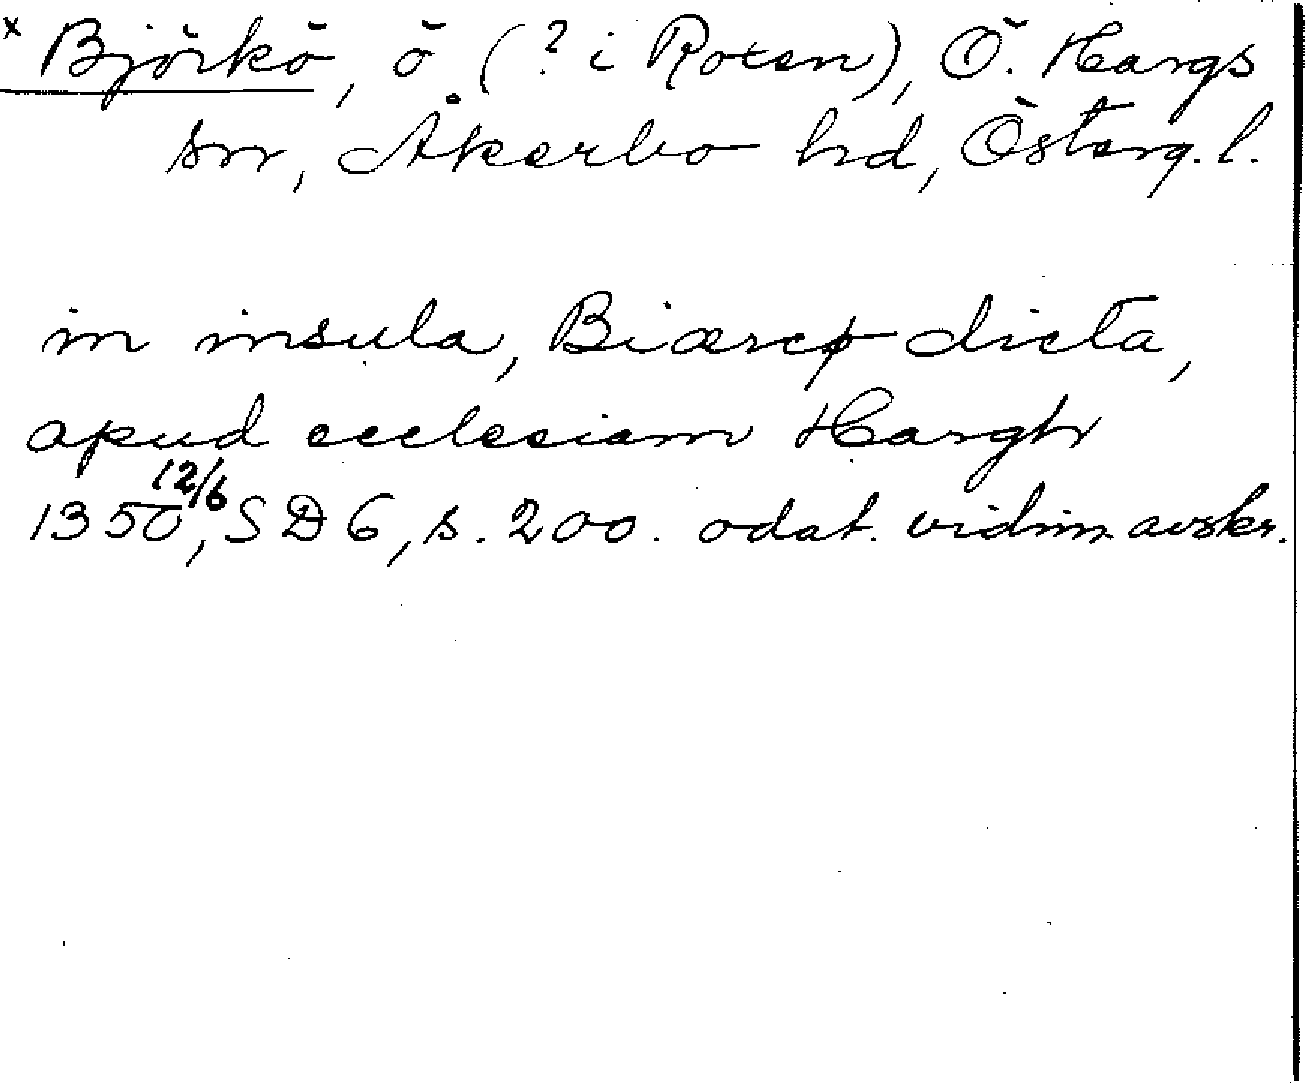 x Björkö, ö (? i Roxen), Ö. Hargs
sn, Åkerbo hd, Österg. l.
in insula, Biærcø dicta,
apud ecclesiam Hargh
1350 12/6, SD 6, s. 200. odat. vidim. avskr.